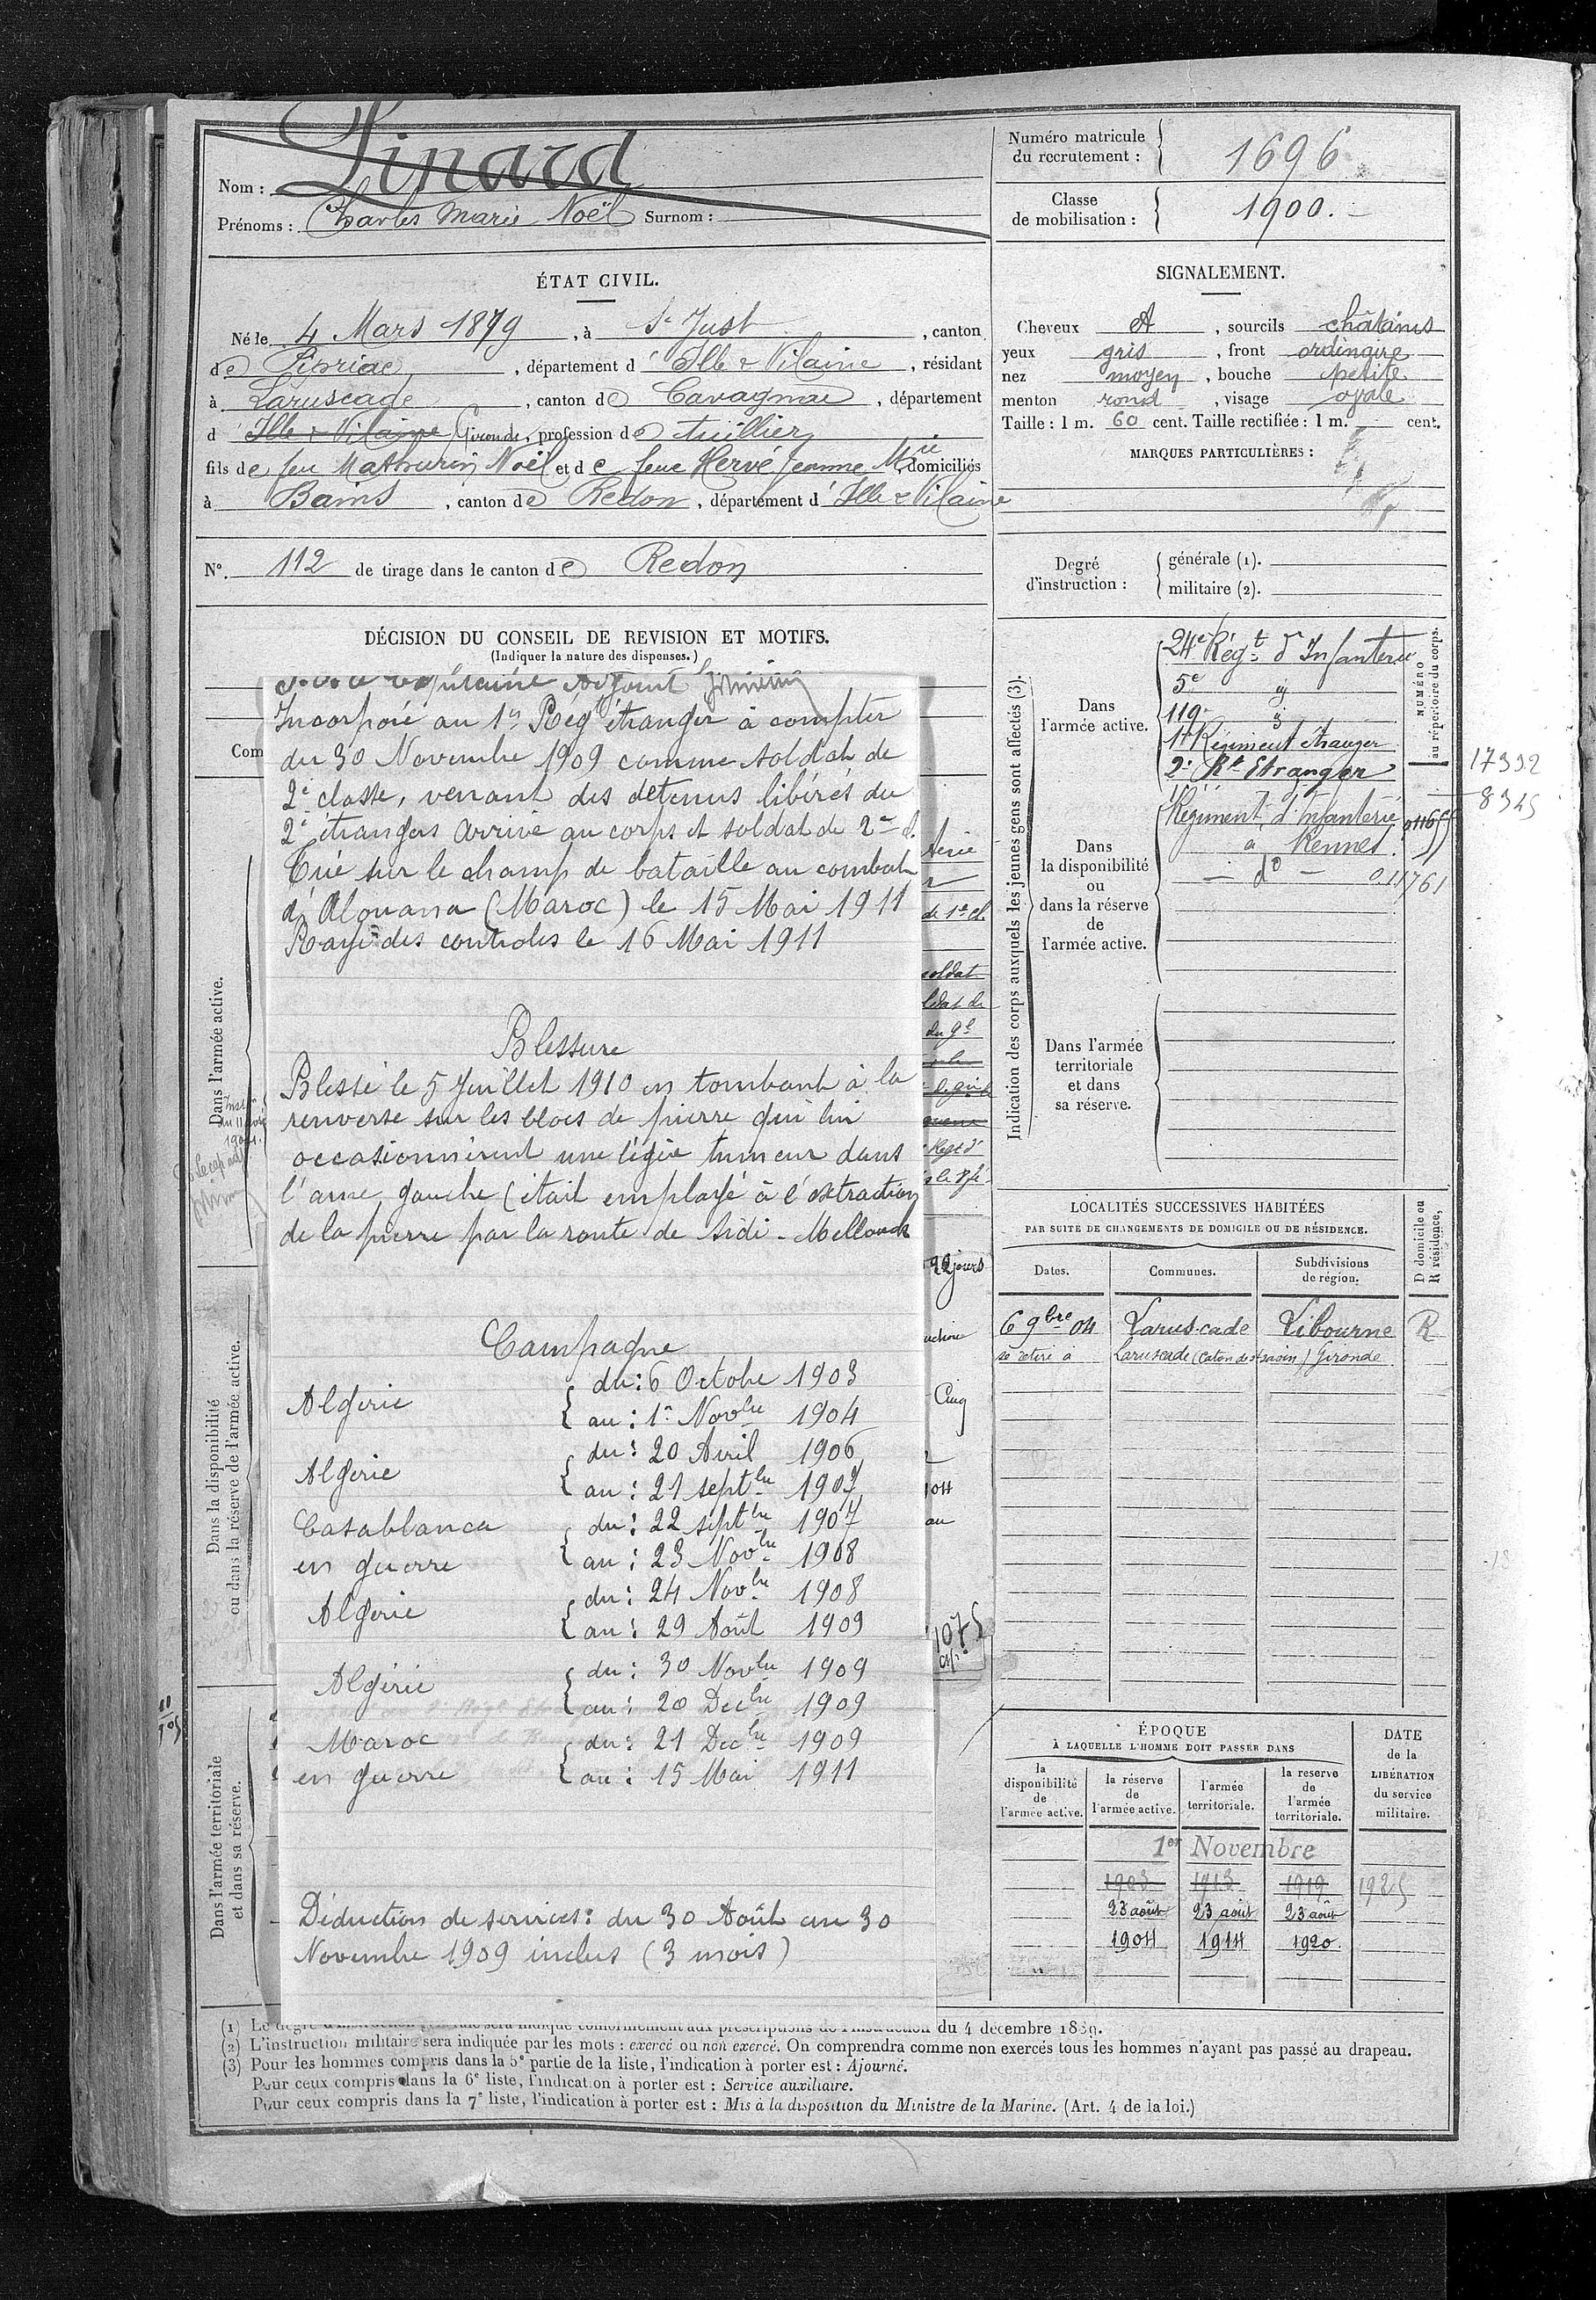 Nom : Linard
Prénoms : Charles Marie Noël Surnom :
Numéro matricule du recrutement : 1696
Classe de mobilisation : 1900.
ÉTAT CIVIL.
Né le 4 Mars 1879, à St Just, canton
de Pipriac, département d'Ille & Vilaine, résidant
à Laruscade, canton de Cavagnac, département
d Ille & Vilaine Gironde, profession de tuillier
fils de feu Mathurin Noël et de feue Hervé Jeanne Mie, domiciliés
à Bains, canton de Redon, département d'Ille & Vilaine
N°. 112 de tirage dans le canton de Redon
SIGNALEMENT.
Cheveux et, sourcils châtains
yeux gris, front ordinaire
nez moyen, bouche petite
menton rond, visage ovale
Taille : 1 m. 60 cent. Taille rectifiée : 1 m. cent.
MARQUES PARTICULIÈRES :
Degré d'instruction :
générale (1).
militaire (2).
DÉCISION DU CONSEIL DE REVISION ET MOTIFS.
(Indiquer la nature des dispenses.)
Adjoint
Incorporé au 1er Régt étranger à compter
du 30 Novembre 1909 comme soldat de
2e classe, venant des détenus libérés du
2e étrangers arrivé au corps et soldat de 2e cl.
Tué sur le champ de bataille au combat
d'Alouana (Maroc) le 15 Mai 1911
Rayé des controles le 16 Mai 1911
Blessure
Blessé le 5 Juillet 1910 en tombant à la
renverse sur les blocs de pierre qui lui
occasionnèrent une légère tumeur dans
l'aine gauche (était employé à l'extraction
de la pierre par la route de Sidi-Mellouck
Campagne
Algérie { du : 6 Octobre 1903
{ au : 1er Novbre 1904
Algérie { du : 20 Avril 1906
{ au : 21 septbre 1907
Casablanca { du : 22 septbre 1907
en guerre { au : 23 Novbre 1908
Algérie { du : 24 Novbre 1908
{ au : 29 Août 1909
Algérie { du : 30 Novbre 1909
{ au : 20 Decbre 1909
Maroc { du : 21 Decbre 1909
en guerre { au : 15 Mai 1911
Déduction de services : du 30 Août au 30
Novembre 1909 inclus (3 mois)
Com
de 1e cl.
soldat
du 9e
22 jours
Cinq
au
1075
Dans l'armée active.
Dans la disponibilité
ou dans la réserve de l'armée active.
Dans l'armée territoriale
et dans sa réserve.
Indication des corps auxquels les jeunes gens sont affectés (3).
NUMÉRO
au répertoire du corps.
Dans
l'armée active.
24e Régt d'Infanterie
5e
119e
1er Régiment étranger
2e Rt Etranger
17392
8345
Dans
la disponibilité
ou
dans la réserve
de
l'armée active.
Régiment d'Infanterie
à Rennes.
01165
— do — 011761
Dans l'armée
territoriale
et dans
sa réserve.
LOCALITÉS SUCCESSIVES HABITÉES
PAR SUITE DE CHANGEMENTS DE DOMICILE OU DE RÉSIDENCE.
D domicile ou
R résidence,
Dates. Communes. Subdivisions de région.
6 9bre 04 Laruscade Libourne R
se retire à Laruscade (Caton de St Savin) Gironde
ÉPOQUE
À LAQUELLE L'HOMME DOIT PASSER DANS
la disponibilité de l'armée active.
la réserve de l'armée active.
l'armée territoriale.
la reserve de l'armée territoriale.
DATE de la LIBÉRATION du service militaire.
1er Novembre
1903 1913 1919 1925
23 août 23 août 23 août
1904 1914 1920.
(1) Le degré d'instruction générale sera indiqué conformément aux prescriptions de l'instruction du 4 décembre 1889.
(2) L'instruction militaire sera indiquée par les mots : exercé ou non exercé. On comprendra comme non exercés tous les hommes n'ayant pas passé au drapeau.
(3) Pour les hommes compris dans la 5e partie de la liste, l'indication à porter est : Ajourné.
Pour ceux compris dans la 6e liste, l'indication à porter est : Service auxiliaire.
Pour ceux compris dans la 7e liste, l'indication à porter est : Mis à la disposition du Ministre de la Marine. (Art. 4 de la loi.)